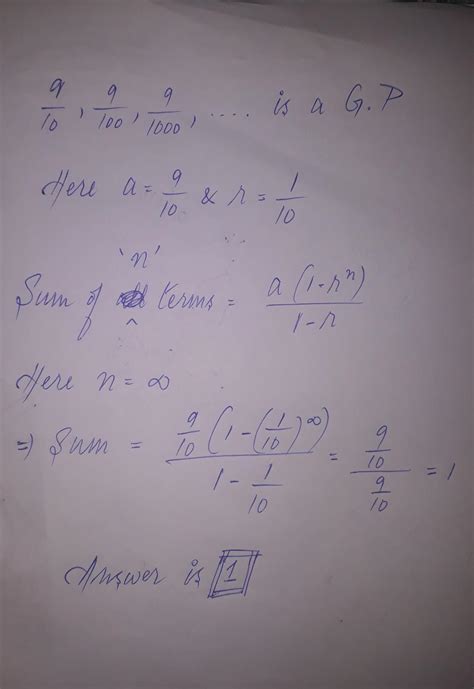 9/10, 9/100, 9/1000, .... is a G.P
Here a = 9/10 & r = 1/10
Sum of 'n' terms = a(1-r^n)/(1-r)
Here n = ∞
=) Sum = (9/10 (1-(1/10)^∞))/(1-1/10) = (9/10)/(9/10) = 1
Answer is 1